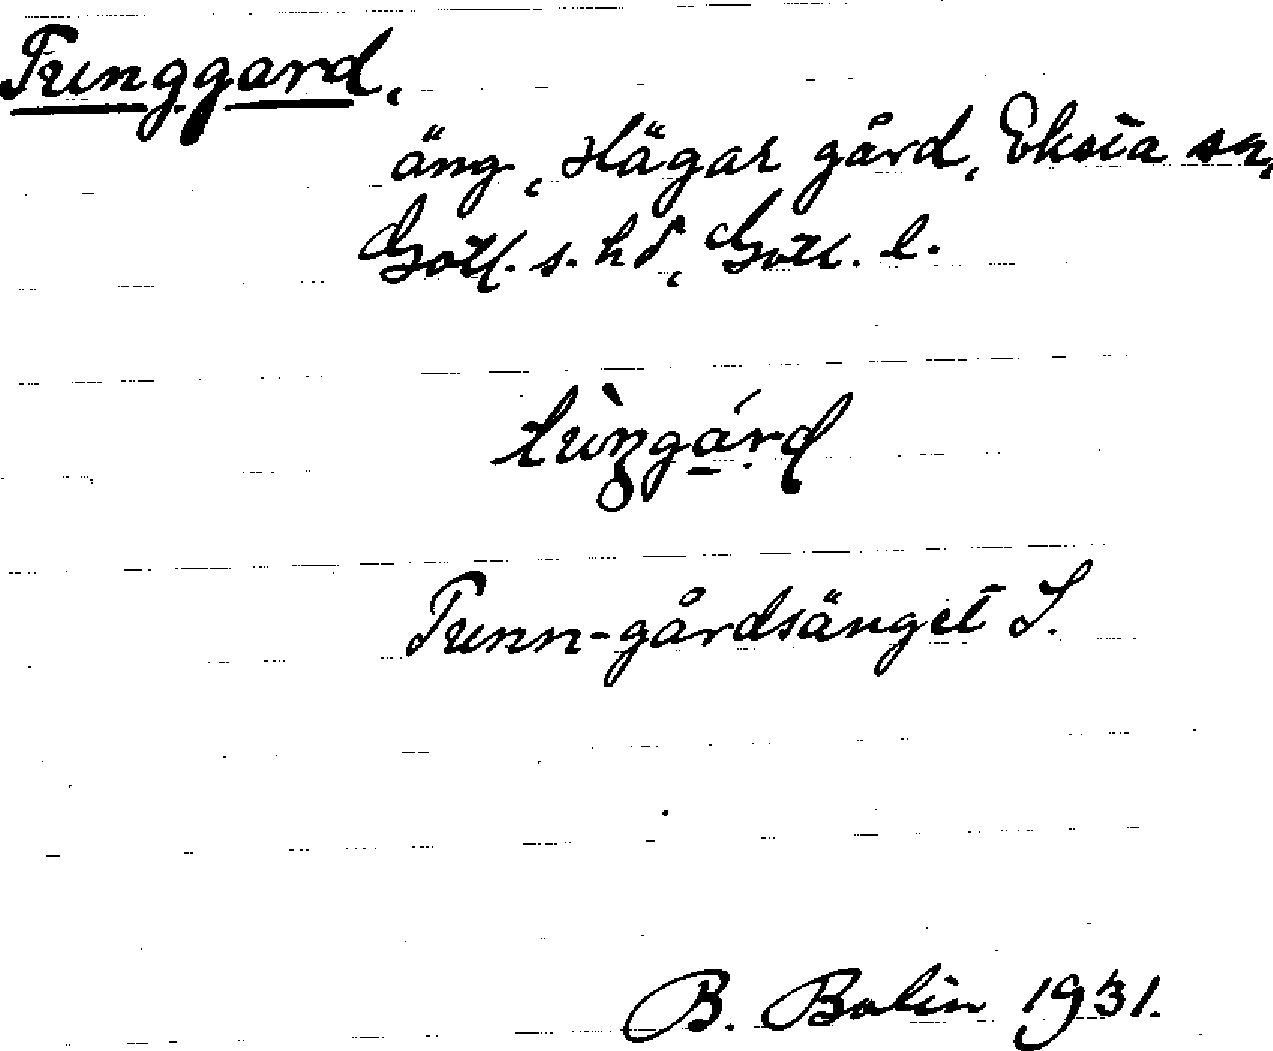 Tunggard,
äng, Hägar gård, Eksta sn,
Gotl. s. hd, Gotl. l.
Tunn-gårdsänget S.
B. Bolin 1931.